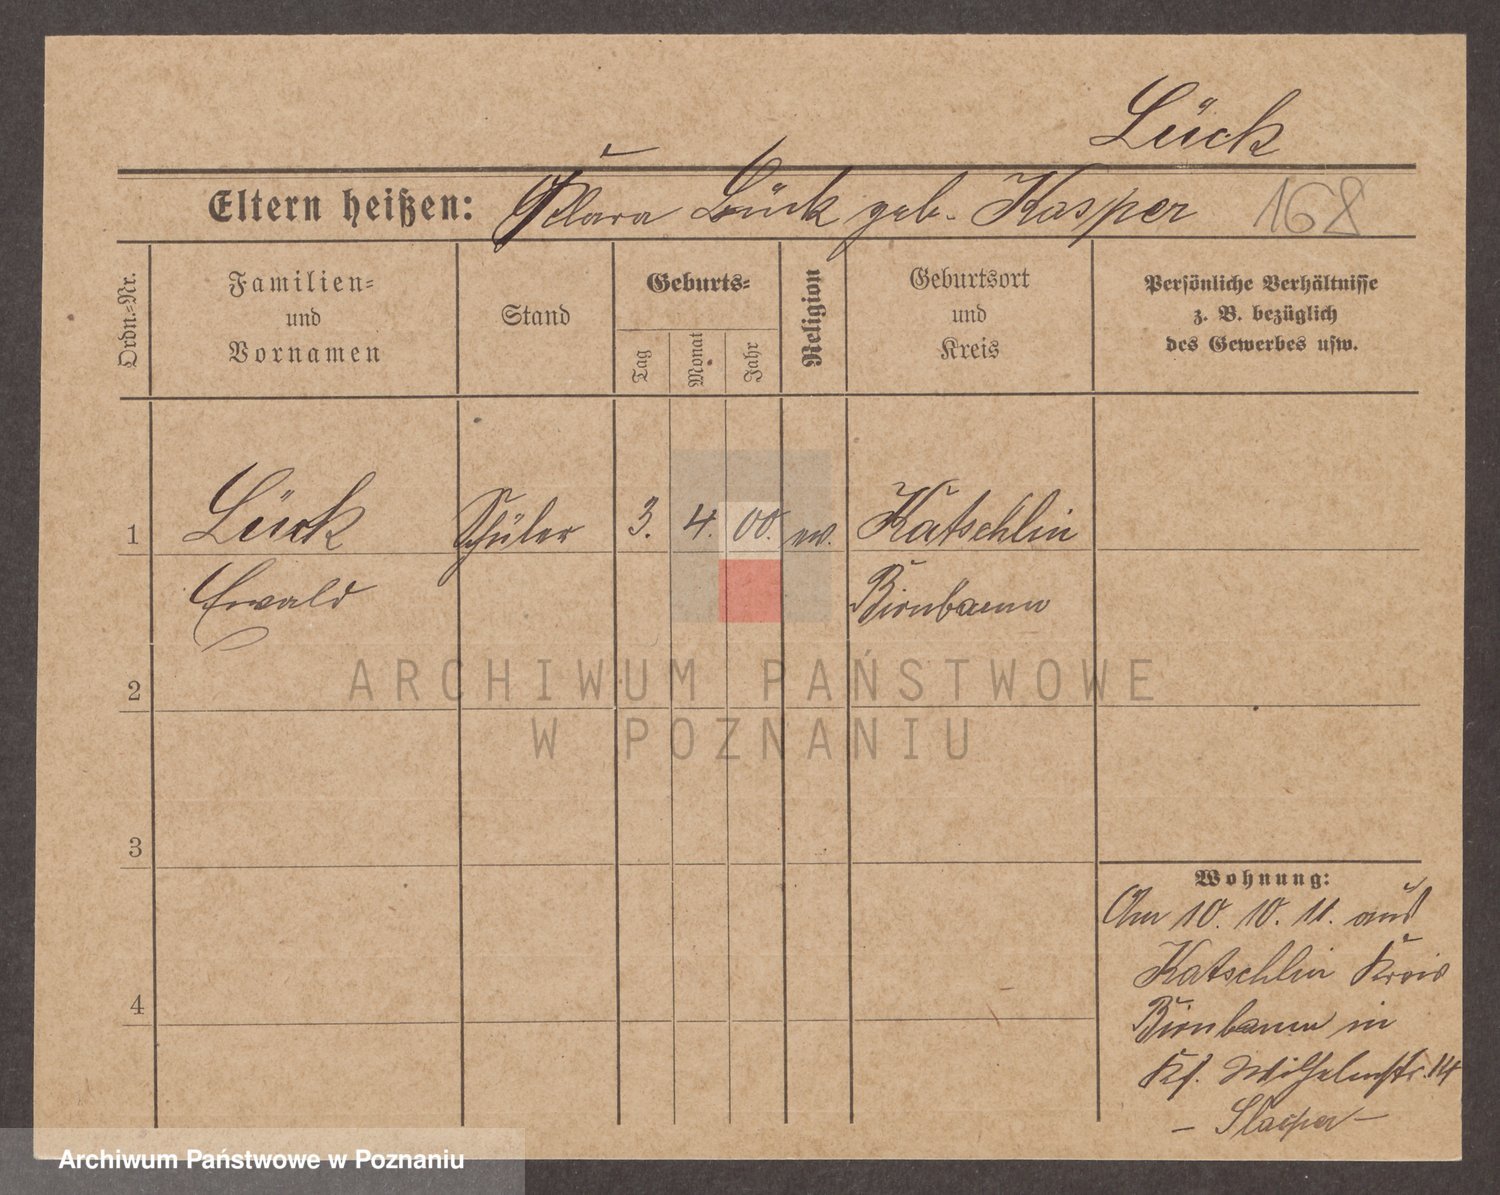 Lück
Eltern heißen: Clara Lück geb. Kasper 168
Ordn.-Nr.
Familien-
und
Vornamen
Stand
Geburts-
Tag
Monat
Jahr
Religion
Geburtsort
und
Kreis
Persönliche Verhältnisse
z. B. bezüglich
des Gewerbes usw.
1 Lück Schüler 3. 4. 00. ev. Katschlin
Ewald Birnbaum
2
3
4
Wohnung:
Am 10. 10. 11. aus
Katschlin Kreis
Birnbaum in
Wilhelmstr. 14
ARCHIWUM PAŃSTWOWE
W POZNANIU
Archiwum Państwowe w Poznaniu